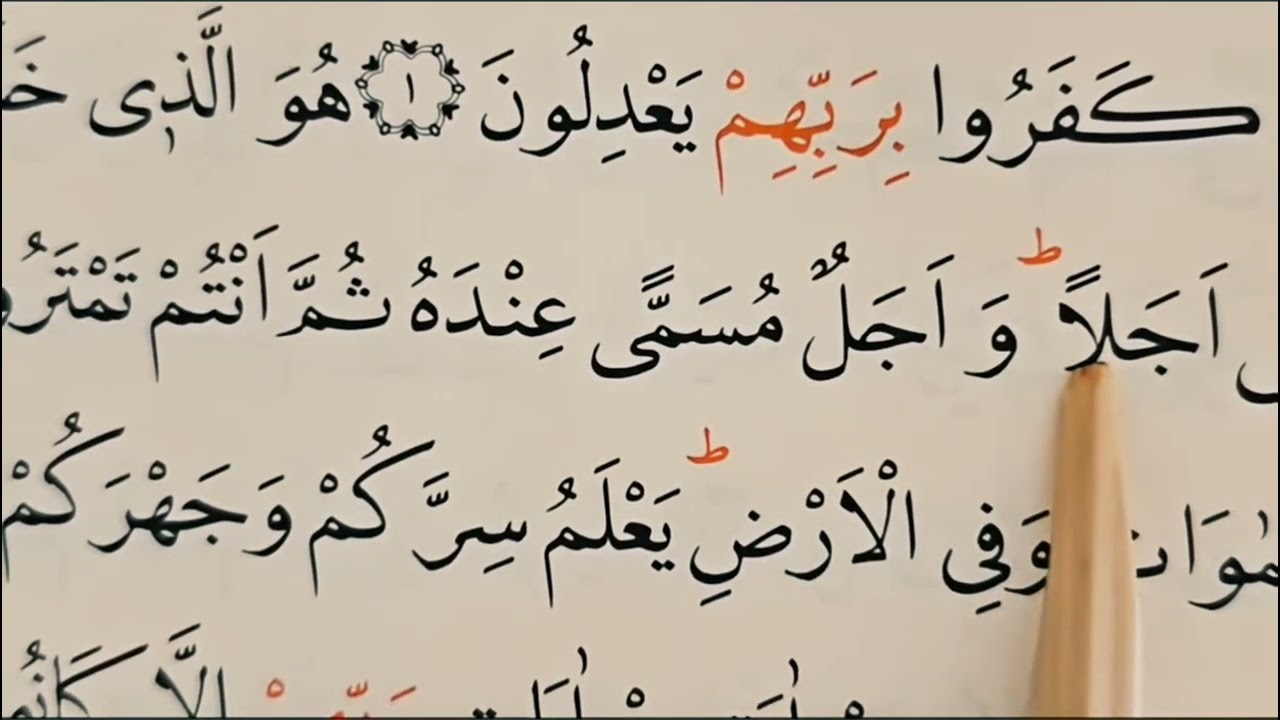 كَفَرُوا بِرَبِّهِمْ يَعْدِلُونَ ١ هُوَ الَّذ۪ي
اَجَلاًۜ وَ اَجَلٌ مُسَمًّى عِنْدَهُ ثُمَّ اَنْتُمْ
وَفِي الْاَرْضِۜ يَعْلَمُ سِرَّكُمْ وَ جَهْرَكُمْ
اِلَّا